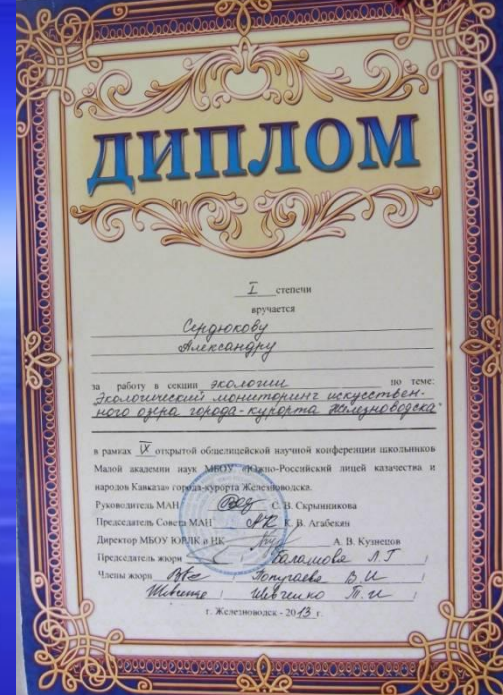 ДИПЛОМ
I степени
вручается
Сердюкову
Александру
за работу в секции экологии по теме:
"Экологический мониторинг искусствен-
ного озера города-курорта Железноводска"
в рамках IX открытой общелицейской научной конференции школьников
Малой академии наук МБОУ «Южно-Российский лицей казачества и
народов Кавказа» города-курорта Железноводска.
Руководитель МАН С. В. Скрынникова
Председатель Совета МАН К. В. Агабекян
Директор МБОУ ЮРЛК и НК А. В. Кузнецов
Председатель жюри Балашова Л.Г
Члены жюри Попугаева В.И
Шевченко Т.И
г. Железноводск - 2013 г.